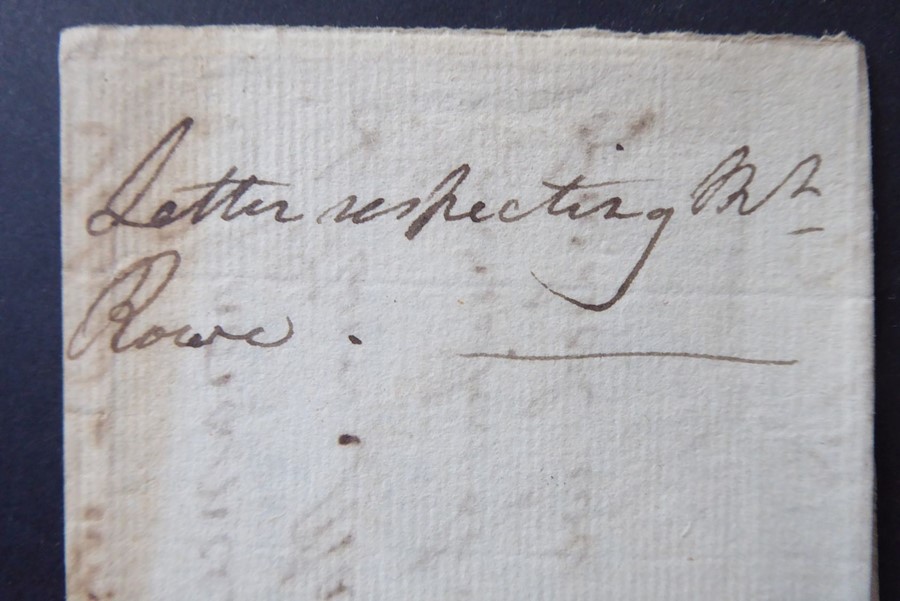 Letter respecting Mr
Rowe.